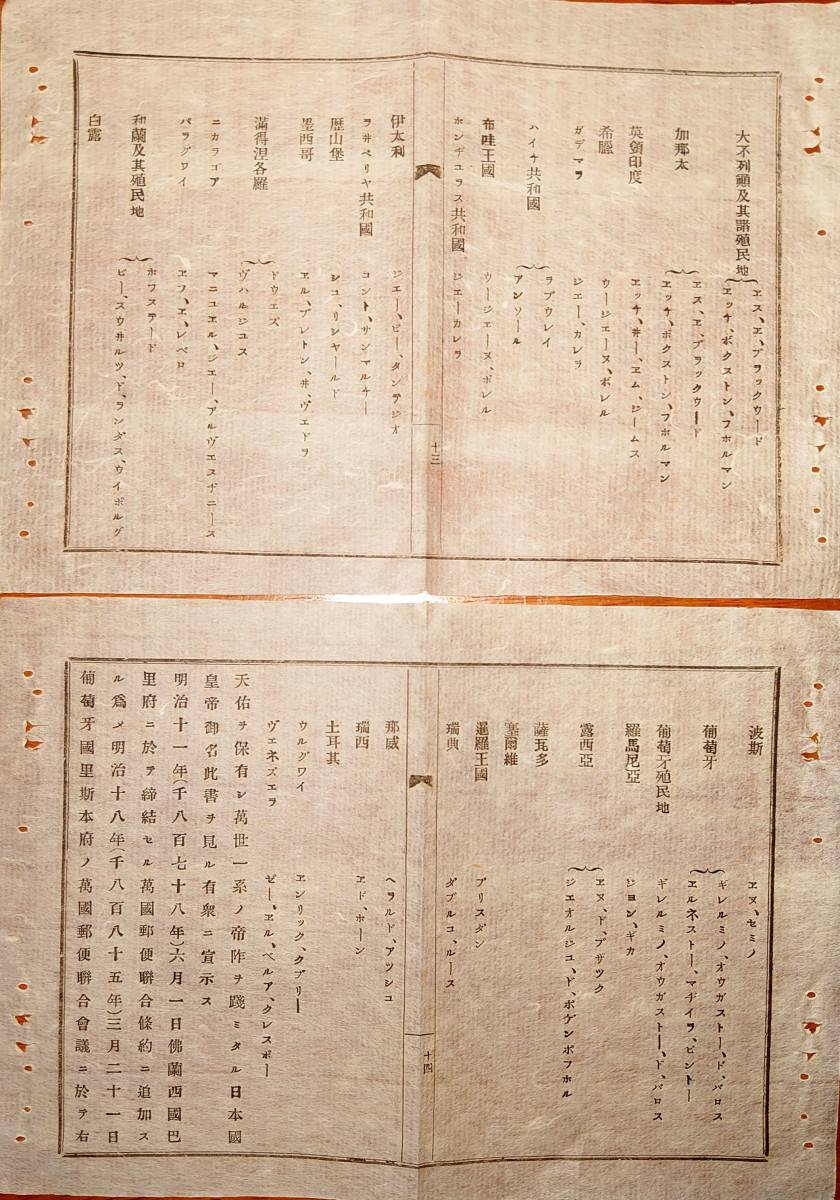 大不列顛及其諸殖民地
ヱス、ヱ、ブラックウード
ヱッチ、ボクストン、フホルマン
加那太
ヱス、ヱ、ブラックウード
ヱッチ、ボクストン、フホルマン
英領印度
ヱッチ、井ー、ヱム、ジームス
希臘
ウージェーヌ、ボレル
ガテマラ
ジェー、カレラ
ハイチ共和國
ラブウレイ
アンソール
布哇王國
ウージェーヌ、ボレル
ホンギユラス共和國
ジエーカレラ
十三
伊太利
ジエー、ビー、タンテジオ
ラ井ベリヤ共和國
コント、サンマルチー
歴山堡
ジユ、リシヤールド
墨西哥
ヱル、ブレトン、井、ヴエドラ
滿得涅各羅
ドウヱズ
ヴハルジユス
ニカラゴア
マニユヱル、ジエー、アルヴエスヂニース
パラグワイ
ヱフ、ヱ、レベロ
和蘭及其殖民地
ホフステード
ビー、スウ井ルツ、ド、ランダス、ウイボルグ
白露
波斯
ヱヌ、セミノ
葡萄牙
ギレルミノ、オウガストー、ド、バロス
ヱルネストー、マデイラ、ピントー
葡萄牙殖民地
ギレルミノ、オウガストー、ド、バロス
羅馬尼亞
ジヨン、ギカ
露西亞
ヱヌ、ド、ブザツク
ジエオルジユ、ド、ボゲンポフホル
薩瓦多
塞爾維
暹羅王國
プリスダン
瑞典
ダブルユ、ルース
十四
那威
ヘラルド、アツシユ
瑞西
ヱド、ホーン
土耳其
ウルグワイ
ヱンリック、クブリー
ヴェネズエラ
ゼー、ヱル、ペルア、クレスポー
天佑ヲ保有シ萬世一系ノ帝祚ヲ踐ミタル日本國
皇帝御名此書ヲ見ル有衆ニ宣示ス
明治十一年(千八百七十八年)六月一日佛蘭西國巴
里府ニ於テ締結セル萬國郵便聯合條約ニ追加ス
ル爲メ明治十八年(千八百八十五年)三月二十一日
葡萄牙國里斯本府ノ萬國郵便聯合會議ニ於テ右